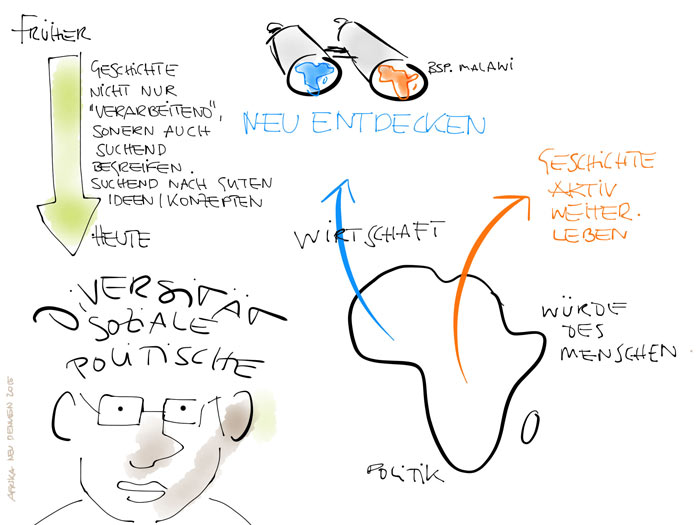 FRÜHER
GESCHICHTE
NICHT NUR
"VERARBEITEND",
SONDERN AUCH
SUCHEND
BEGREIFEN.
SUCHEND NACH GUTEN
IDEEN/KONZEPTEN
HEUTE
BSP. MALAWI
NEU ENTDECKEN
GESCHICHTE
AKTIV
WEITER.
LEBEN
WIRTSCHAFT
DIVERSITÄT
SOZIALE
POLITISCHE
WÜRDE
DES
MENSCHEN.
POLITIK
AFRIKA NEU DENKEN 2015